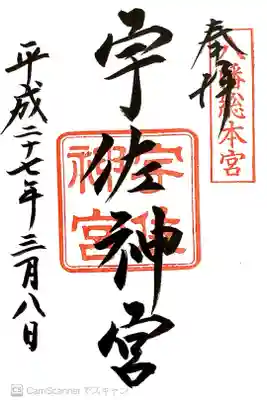 奉拝
八幡総本宮
宇佐神宮
宇佐
神宮
平成二十七年三月八日
CS CamScanner でスキャン